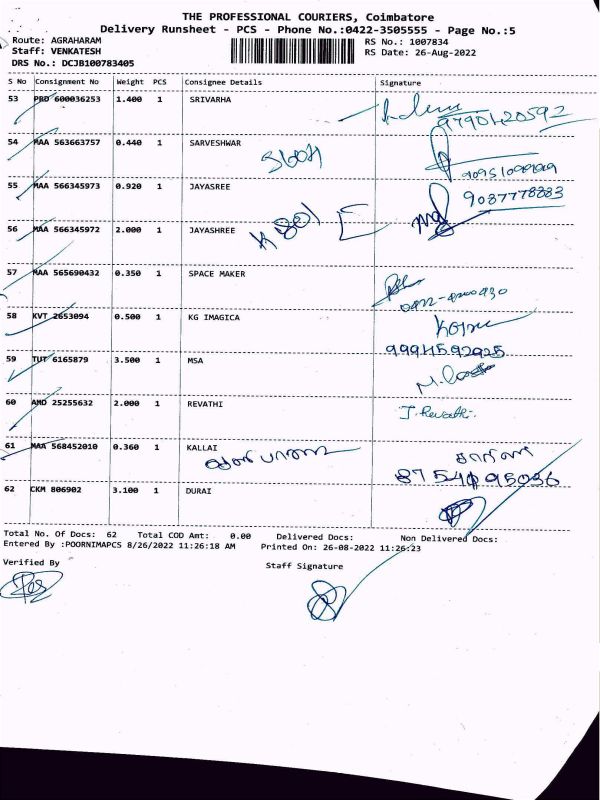 THE PROFESSIONAL COURIERS, Coimbatore
Delivery Runsheet - PCS - Phone No.:0422-3505555 - Page No.:5
Route: AGRAHARAM RS No.: 1007834
Staff: VENKATESH RS Date: 26-Aug-2022
DRS No.: DCJB100783405
S No Consignment No Weight PCS Consignee Details Signature
53 PRD 600036253 1.400 1 SRIVARHA
9790420592
54 MAA 563663757 0.440 1 SARVESHWAR
55 MAA 566345973 0.920 1 JAYASREE
9087778883
56 MAA 566345972 2.000 1 JAYASHREE
57 MAA 565690432 0.350 1 SPACE MAKER
58 KVT 2653094 0.500 1 KG IMAGICA
59 TUT 6165879 3.500 1 MSA
60 AMD 25255632 2.000 1 REVATHI J. Revathi.
61 MAA 568452010 0.360 1 KALLAI
62 CKM 806902 3.100 1 DURAI
Total No. Of Docs: 62 Total COD Amt: 0.00 Delivered Docs: Non Delivered Docs:
Entered By :POORNIMAPCS 8/26/2022 11:26:18 AM Printed On: 26-08-2022 11:26:23
Verified By Staff Signature